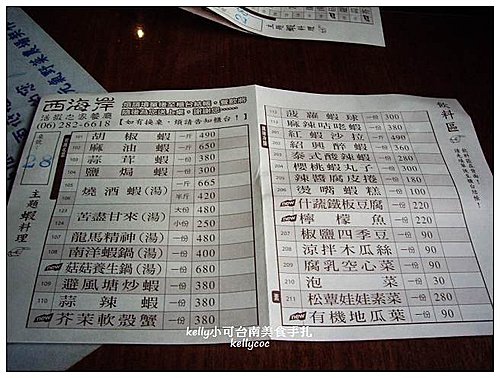 西海岸
活蝦之家餐廳
(06)282-6618
煩請填單後至櫃台結帳。餐飲前
【如有換桌，煩請告知櫃台！】
主題蝦料理
101 胡椒蝦 一斤 490
102 麻油蝦 一份 650
103 蒜茸蝦 一份 380
104 鹽焗蝦 一份 380
105 燒酒蝦(湯) 一斤 665
106 半斤 420
苦盡甘來(湯) 大份 480
小份 250
107 龍馬精神(湯) 一份 480
108 南洋蝦鍋(湯) 一份 400
new 菇菇養生鍋(湯) 一份 680
109 避風塘炒蝦 一份 380
110 蒜辣蝦 一份 380
new 芥茉軟殼蟹 一份 380
飲料區
112 菠蘿蝦球 一份 300
麻辣咕咾蝦 一份 380
紅蝦沙拉 一份 490
紹興醉蝦 一份 360
泰式酸辣蝦 一份 280
櫻桃蝦丸子 一份 280
辣醬腐皮捲 一份 180
燙嘴蝦糕 一份 100
new 什蔬鐵板豆腐 一份 220
new 檸檬魚 一份 220
207 椒鹽四季豆 一份 90
208 涼拌木瓜絲 一份 90
209 腐乳空心菜 一份 90
210 泡菜 一份 30
211 松蕈娃娃素菜 一份 280
new 有機地瓜葉 一份 90
kelly小可台南美食手扎
kellycoc